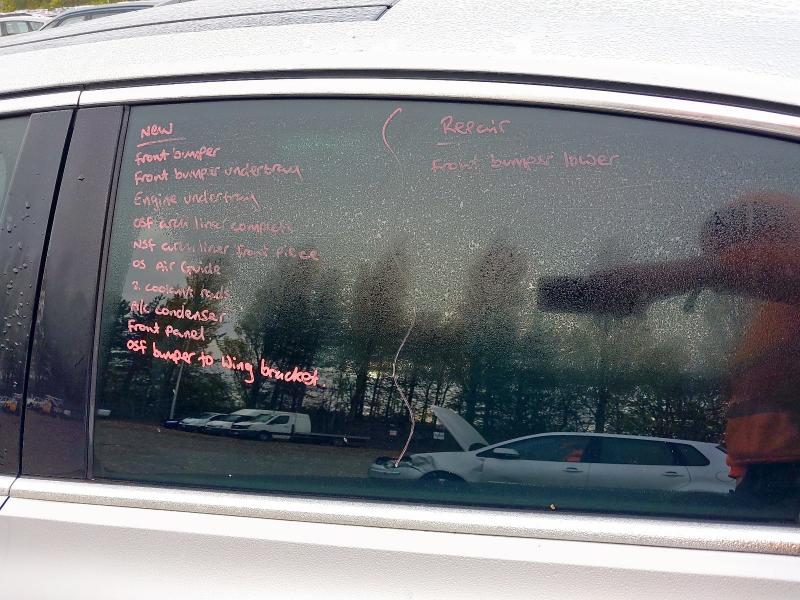 New
front bumper
Front bumper undertray
Engine undertray
OSF arch liner complete
NSF arch liner front piece
OS Air Guide
2 coolant rads
A/c condenser
Front panel
OSF bumper to wing bracket.
Repair
Front bumper lower